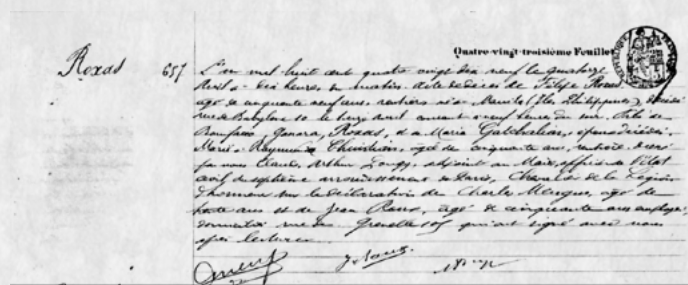 Quatre-vingt-troisième Feuillet
Roxas 657 L'an mil huit cent quatre vingt dix neuf le quatorze
Avril à dix heures du matin. Acte de décès de Filipe Roxas,
âgé de cinquante neuf ans, rentier né à Manille (Iles Philippines), décédé
rue de Babylone 10 le treize avril courant à neuf heures du soir, fils de
Roxas, et de Maria époux de
Maria Raymunda âgée de cinquante ans, rentière. Dressé
par nous Claude, Arthur adjoint au Maire, officier de l'état
civil du septième arrondissement de Paris, Chevalier de la Légion
d'honneur sur la déclaration de Charles âgé de
trente ans et de Jean Roux, âgé de cinquante ans employés
domiciliés rue de Grenelle 109 qui ont signé avec nous
après lecture.